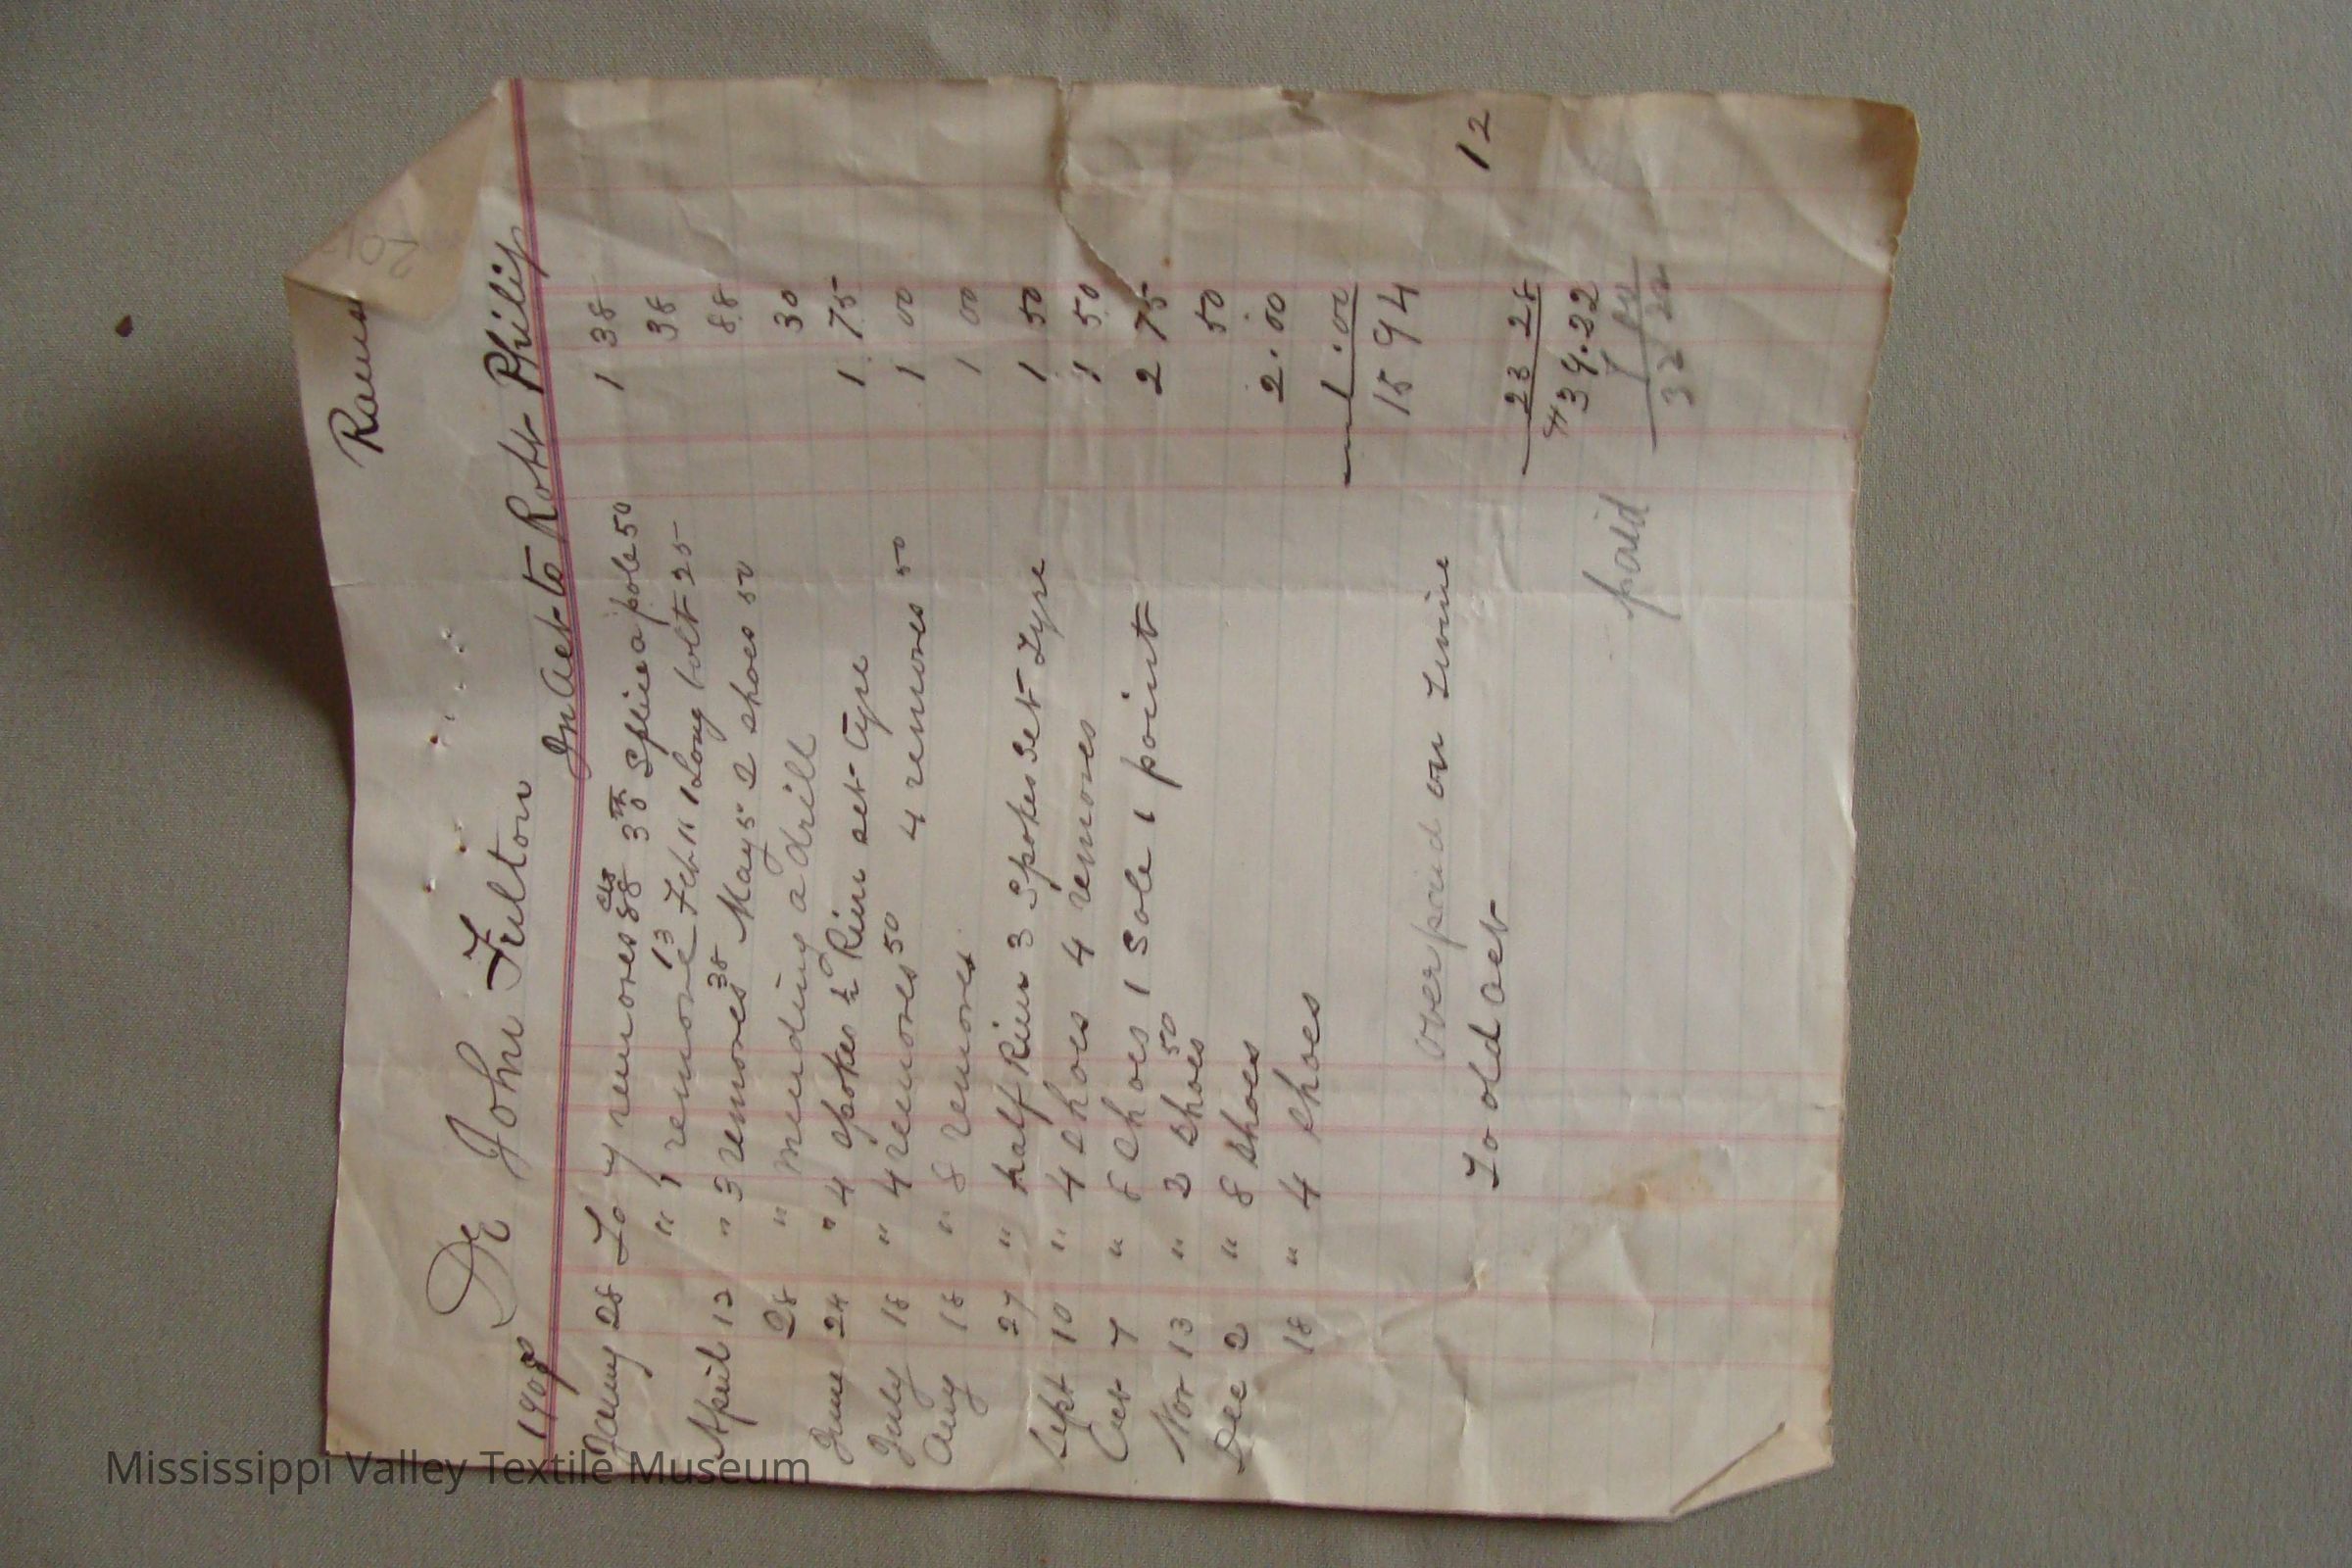 Dr John Fulton
In Act to Robt Philip
1908
Jany 28 To 7 removes 88 cts 30th Splice a pole 50 1 38
" 1 remove 13 Feb 11 1 Long bolt 25 38
April 12 " 3 removes 38 May 5 2 shoes 50 88
28 " mending a drill 30
June 24 " 4 spokes ½ Rim set tyre 1.75
July 18 " 4 removes 50 4 removes 50 1 00
Aug 18 " 8 removes 1 00
27 " half Rim 3 Spokes Set Tyre 1 50
Sept 10 " 4 shoes 4 removes 1 50
Oct 7 " 5 shoes 1 Sole 1 point 2 75
Nov 13 " 2 shoes 50 50
Dec 2 " 8 shoes 2.00
18 " 4 shoes 1.00
15 94
overpaid on 12
To old act 23 28
$39.22
paid
32 22
Mississippi Valley Textile Museum